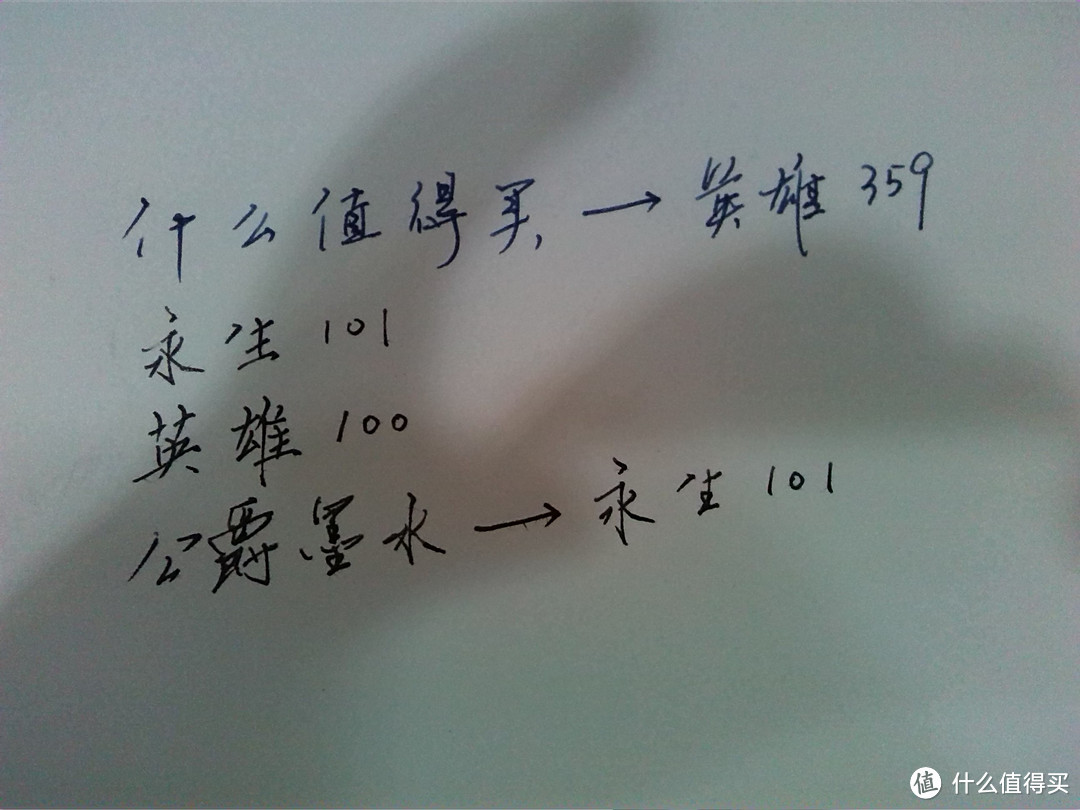 什么值得买 → 英雄 359
永生 101
英雄 100
公爵墨水 → 永生 101
值 什么值得买